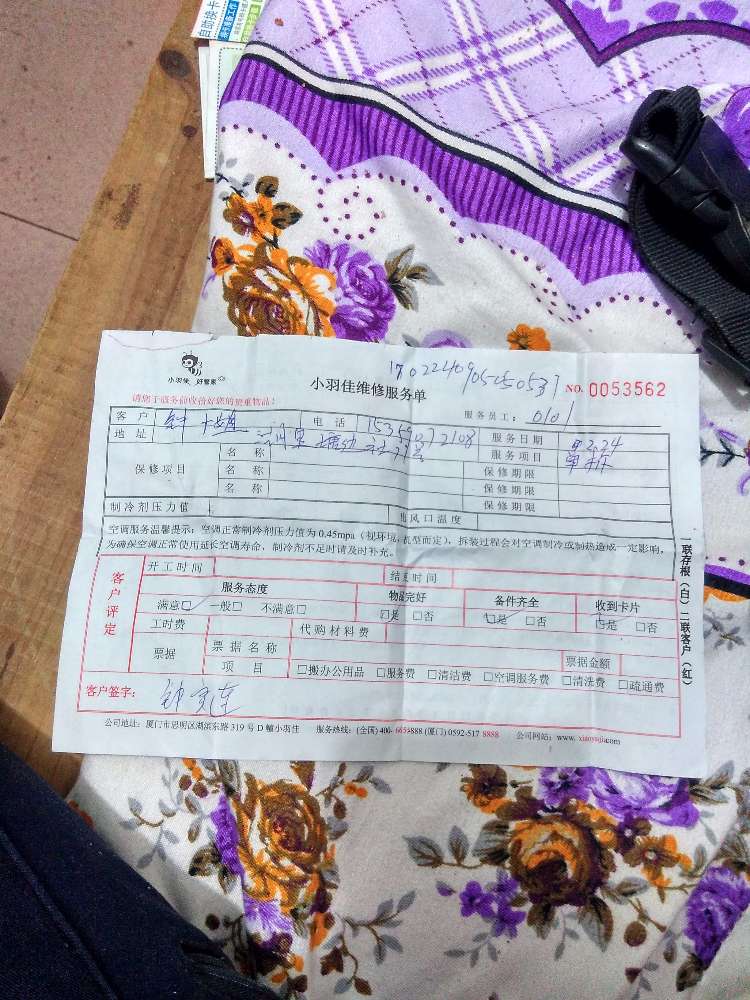 自助快卡
小羽佳 好管家
小羽佳维修服务单
NO. 0053562
请您于服务前收拾好您的贵重物品!
服务员工: 0101
客户 电话
服务日期
地址
服务项目 单拆
保修项目 名称 保修期限
名称 保修期限
名称 保修期限
制冷剂压力值 出风口温度
空调服务温馨提示:空调正常制冷剂压力值为0.45mpa(视环境、机型而定),拆装过程会对空调制冷或制热造成一定影响,
为确保空调正常使用延长空调寿命,制冷剂不足时请及时补充。
客户评定
开工时间 结束时间
服务态度 物品完好 备件齐全 收到卡片
满意□ 一般□ 不满意□ □是 □否 □是 □否 □是 □否
工时费 代购材料费
票据 票据名称 票据金额
项目 □搬办公用品 □服务费 □清洁费 □空调服务费 □清洗费 □疏通费
客户签字:
公司地址: 厦门市思明区湖滨东路319号D幢小羽佳 服务热线: (全国) 400-6653888 (厦门) 0592-517 8888 公司网站: www. xiaoyujia.com
一联存根(白)二联客户(红)